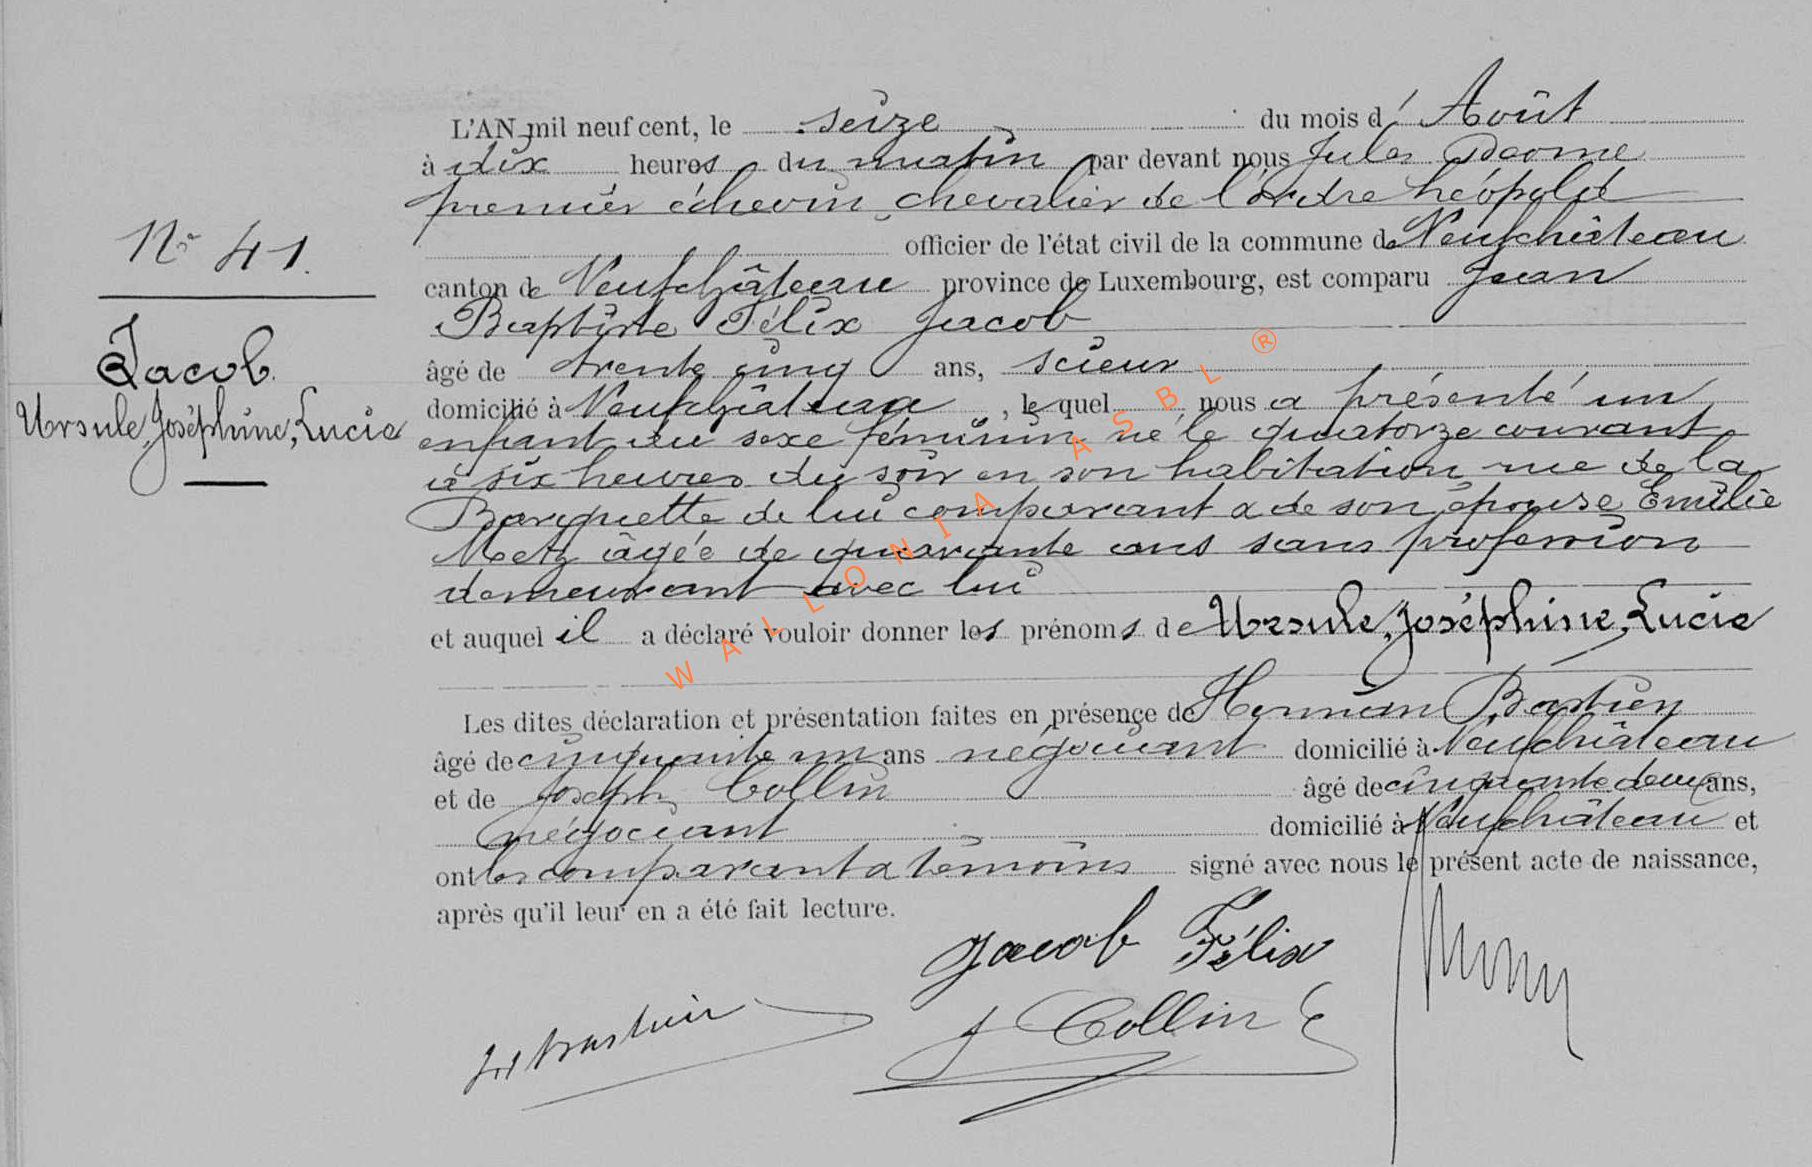 L'AN mil neuf cent, le seize du mois d' Août
à dix heures du matin par devant nous Jules
premier échevin, chevalier de l'Ordre Léopold
officier de l'état civil de la commune de Neufchâteau
canton de Neufchâteau province de Luxembourg, est comparu Jean
Baptiste Félix Jacob
âgé de trente cinq ans, scieur
domicilié à Neufchâteau, lequel nous a présenté un
enfant du sexe féminin né le quatorze courant
à six heures du soir en son habitation rue de la
Barquette de lui comparant & de son épouse Emilie
Metz âgée de quarante ans sans profession
demeurant avec lui
et auquel il a déclaré vouloir donner les prénoms de Ursule, Joséphine, Lucie
Les dites déclaration et présentation faites en présence de Herman Bastien
âgé de cinquante un ans négociant domicilié à Neufchâteau
et de Joseph Collin âgé de cinquante deux ans,
négociant domicilié à Neufchâteau et
ont les comparant & témoins signé avec nous le présent acte de naissance,
après qu'il leur en a été fait lecture.
No 41.
Jacob
Ursule, Joséphine, Lucie
Jacob Félix
J Collin
H Bastien
WALLONIA ASBL ®